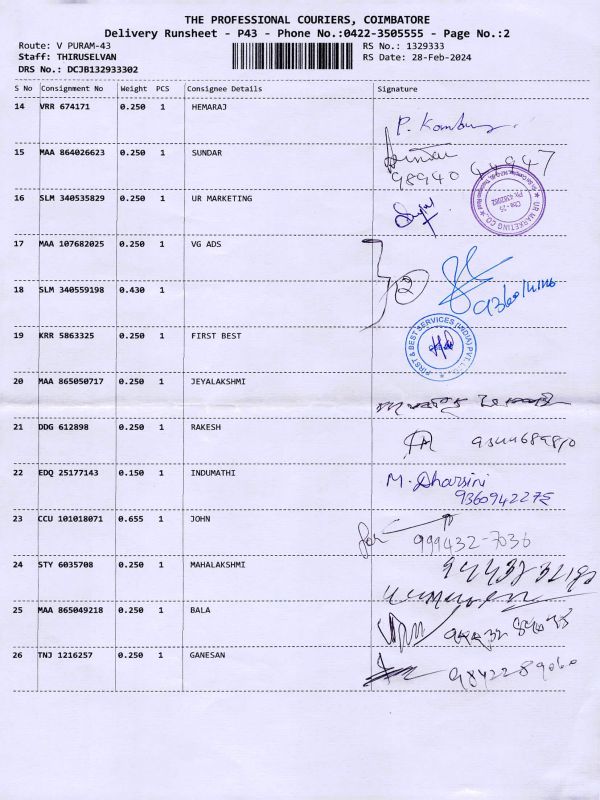 THE PROFESSIONAL COURIERS, COIMBATORE
Delivery Runsheet - P43 - Phone No.:0422-3505555 - Page No.:2
Route: V PURAM-43 RS No.: 1329333
Staff: THIRUSELVAN RS Date: 28-Feb-2024
DRS No.: DCJB132933302
S No Consignment No Weight PCS Consignee Details Signature
14 VRR 674171 0.250 1 HEMARAJ
P.
15 MAA 864026623 0.250 1 SUNDAR
98940 44947
16 SLM 340535829 0.250 1 UR MARKETING
UR MARKETING CO
17 MAA 107682025 0.250 1 VG ADS
2
18 SLM 340559198 0.430 1
19 KRR 5863325 0.250 1 FIRST BEST
FIRST & BEST SERVICES (INDIA) PVT.
20 MAA 865050717 0.250 1 JEYALAKSHMI
21 DDG 612898 0.250 1 RAKESH
22 EDQ 25177143 0.150 1 INDUMATHI
M. Dharsini
9360942275
23 CCU 101018071 0.655 1 JOHN
999432-7036
24 STY 6035708 0.250 1 MAHALAKSHMI
25 MAA 865049218 0.250 1 BALA
26 TNJ 1216257 0.250 1 GANESAN
9842289060